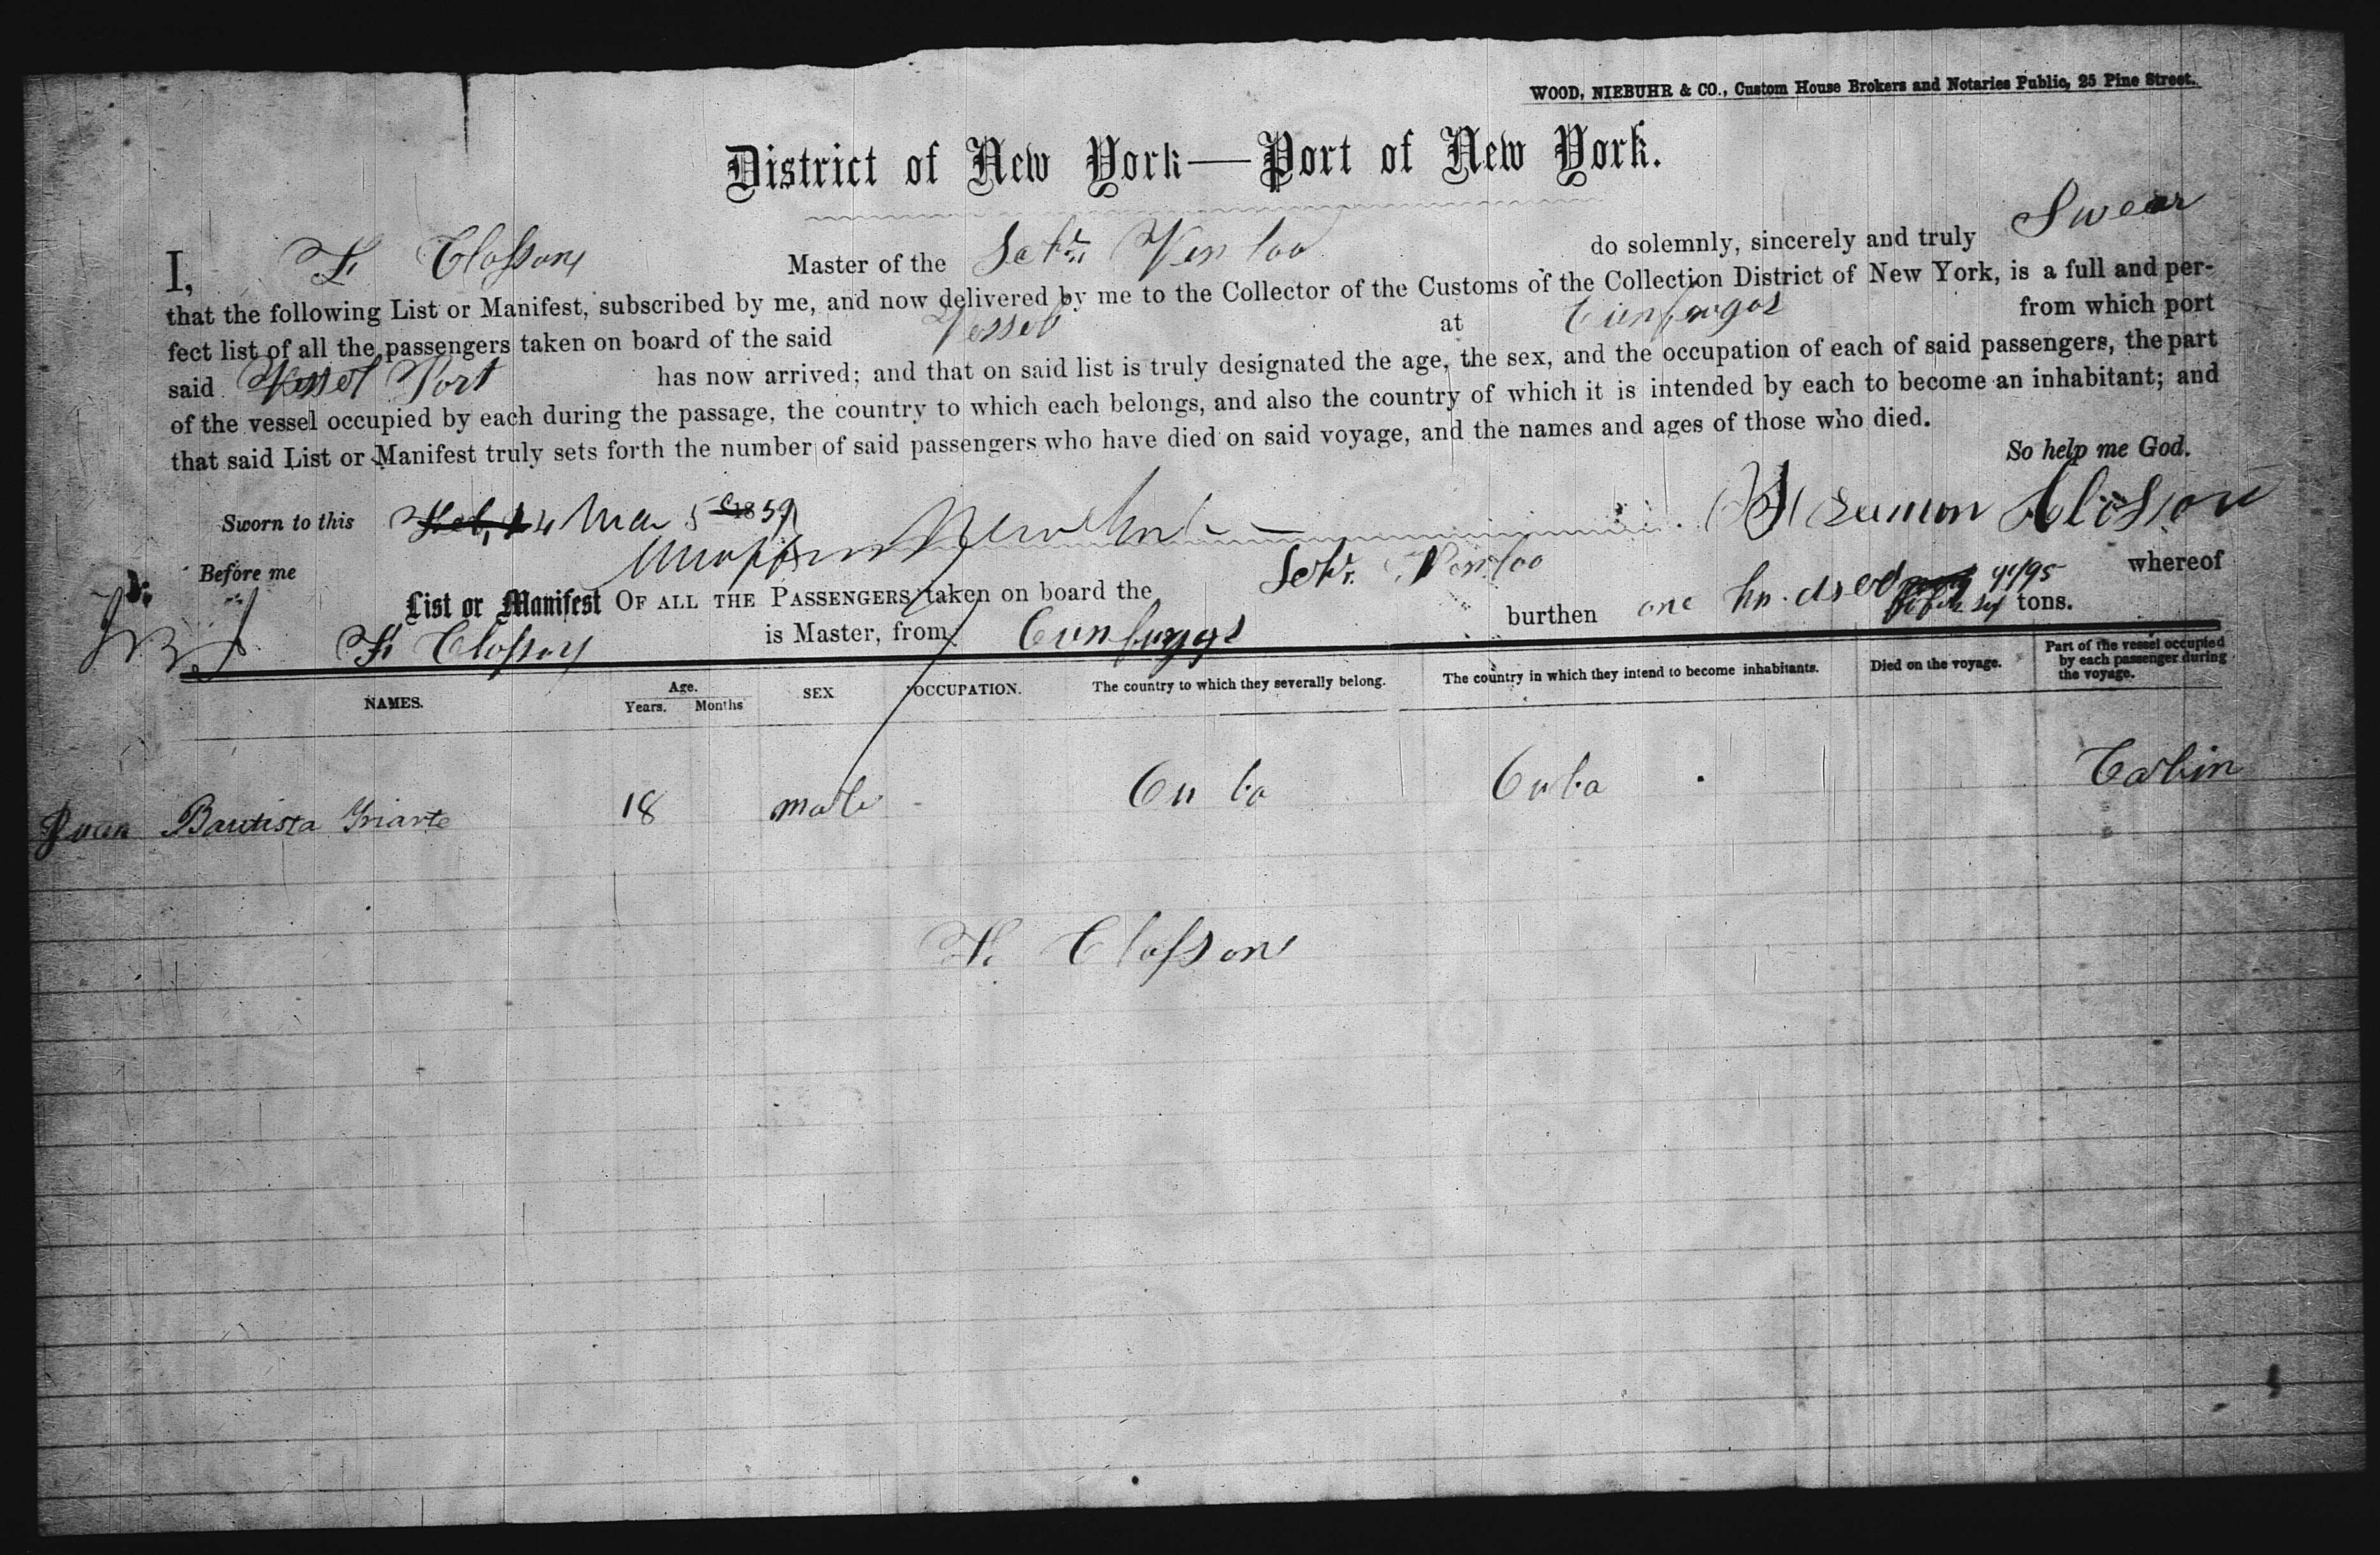 WOOD, NIEBUHR & CO., Custom House Brokers and Notaries Public, 25 Pine Street.
District of New York—Port of New York.
I, F. Closson Master of the Schr. Venloo do solemnly, sincerely and truly Swear
that the following List or Manifest, subscribed by me, and now delivered by me to the Collector of the Customs of the Collection District of New York, is a full and per-
fect list of all the passengers taken on board of the said Vessel at Cienfuegos from which port
said Vessel Port has now arrived; and that on said list is truly designated the age, the sex, and the occupation of each of said passengers, the part
of the vessel occupied by each during the passage, the country to which each belongs, and also the country of which it is intended by each to become an inhabitant; and
that said List or Manifest truly sets forth the number of said passengers who have died on said voyage, and the names and ages of those who died.
So help me God.
Sworn to this 1859 Closson
Before me
List or Manifest OF ALL THE PASSENGERS taken on board the Schr. Venloo burthen one hundred tons. whereof
F. Closson is Master, from Cienfuegos
NAMES. Age. Years. Months SEX OCCUPATION. The country to which they severally belong. The country in which they intend to become inhabitants. Died on the voyage. Part of the vessel occupied by each passenger during the voyage.
Juan Bautista Yriarte 18 male Cuba Cuba Cabin
F. Closson